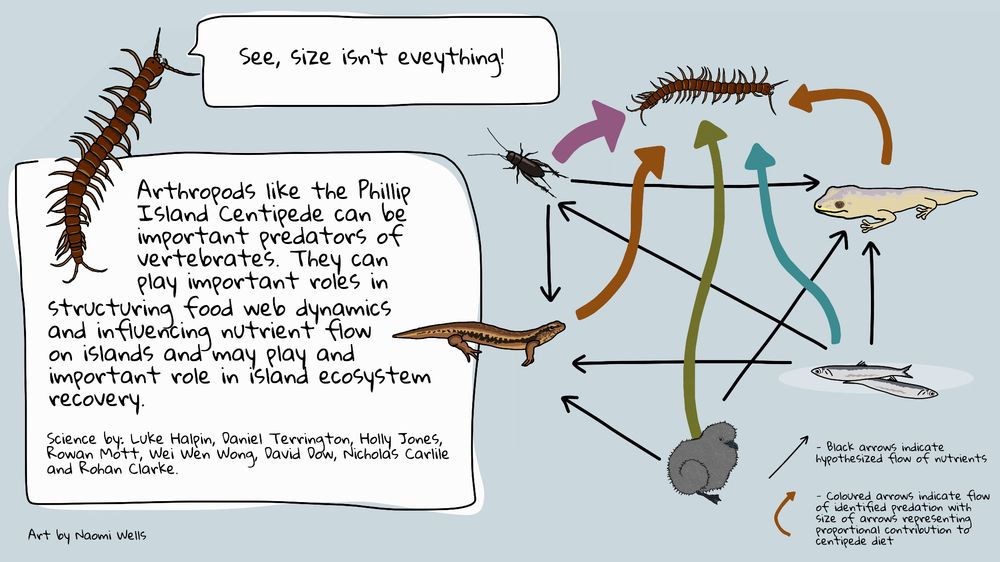 See, size isn't eveything!
Arthropods like the Phillip
Island Centipede can be
important predators of
vertebrates. They can
play important roles in
structuring food web dynamics
and influencing nutrient flow
on islands and may play and
important role in island ecosystem
recovery.
Science by: Luke Halpin, Daniel Terrington, Holly Jones,
Rowan Mott, Wei Wen Wong, David Dow, Nicholas Carlile
and Rohan Clarke.
Art by Naomi Wells
- Black arrows indicate
hypothesized flow of nutrients
- Coloured arrows indicate flow
of identified predation with
size of arrows representing
proportional contribution to
centipede diet